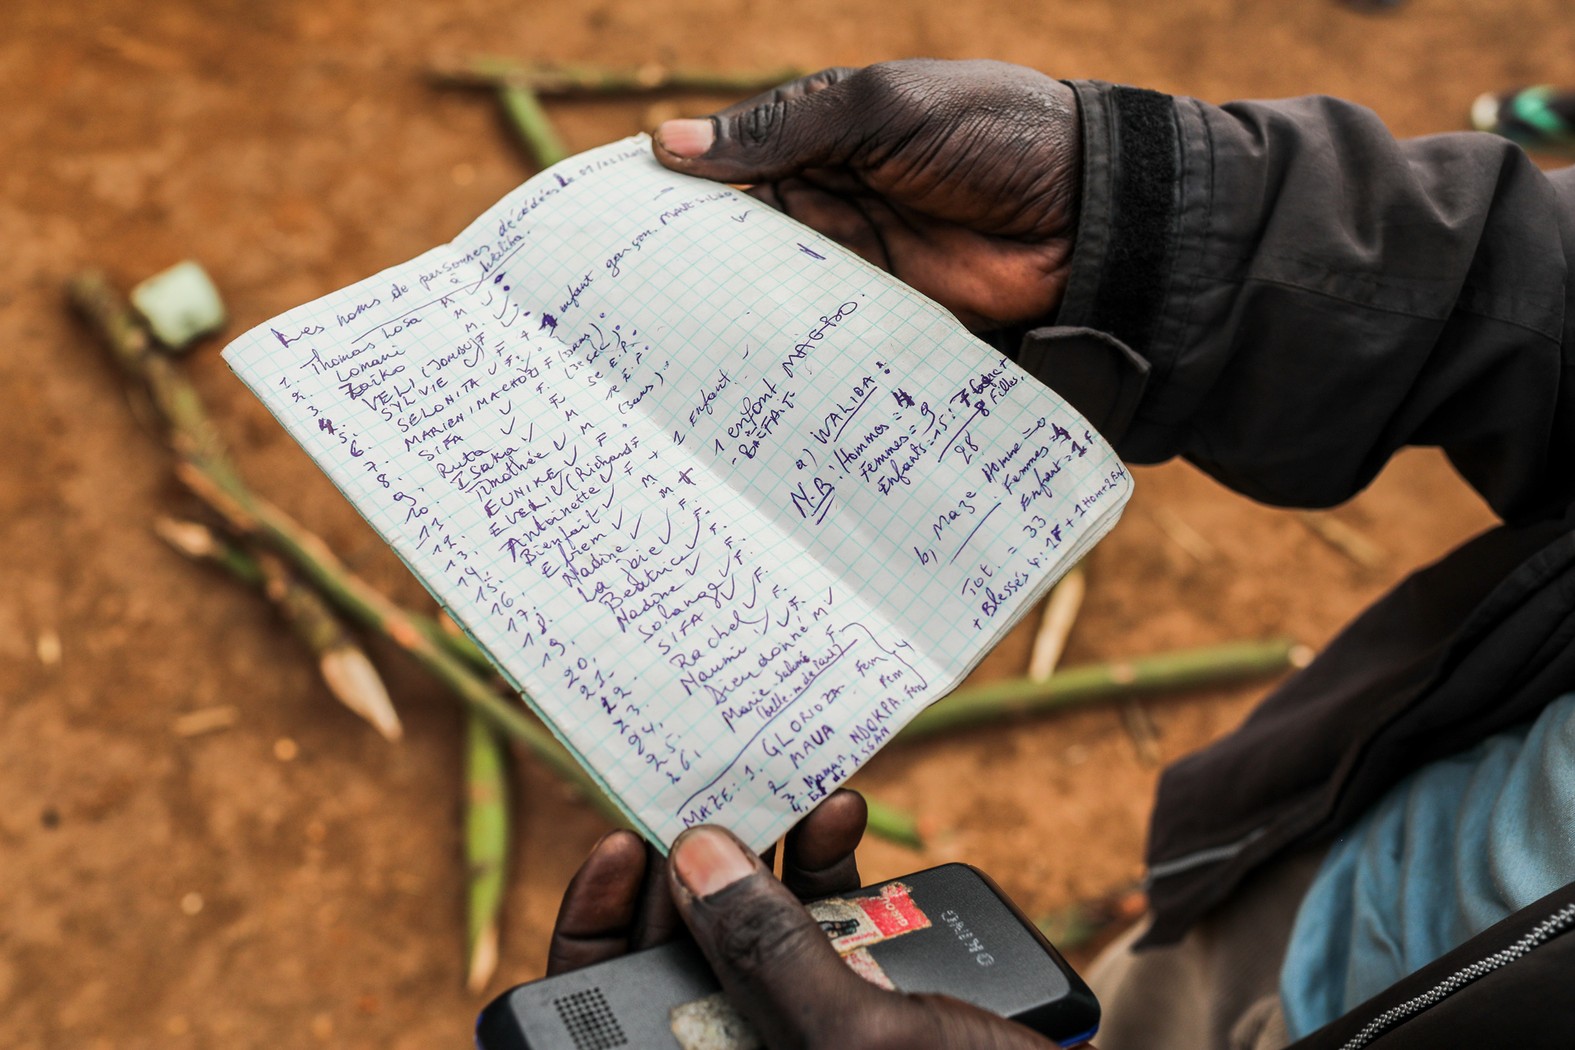 Les noms de personnes décédées le 01/02/2018
à Waliba.
1. Thomas Losa M ✓
2. Lomani M. ✓
3. Zaiko
4. VELI (JOMBU) F
5. SYLVIE ✓ F +
6. SELONITA ✓ F.
7. MARIEN/MACHOZI F
8. SIFA ✓ F.
9. Ruta ✓ F.
10. Isaka / M
11. Timothée ✓ M
12. EUNIKE ✓ F
13. EVELI ✓ (Richard F
14. Antoinette ✓ F +
15. Bienfait ✓ M
16. Efiem ✓ M
17. Nadine ✓ F.
18. La joie ✓ F.
19. Béatrice ✓ F.
20. Nadine ✓ F.
21. Solange ✓ F.
22. SIFA ✓ F.
23. Rachel ✓ F.
24. Naumi ✓ F.
25. Dieudonné M ✓
26. Marie-Salomé F.
(belle-mère
MAZE: 1. GLORIOZA. Fem
2 MAUA Fem
3. Maman NDOKPA. Fem
4.
4
enfant garçon.
(3ans)
1 Enfant
1 enfant MAGBO.
- BA=FAIT-
N.B: a) WALIBA:
Hommes = 4
Femmes = 9
Enfants = 15: 7 Garç +
8 Filles.
28
b, Maze Homme = 0
Femmes = 4
Enfant = 1 F
Tot. = 33
+ Blessés 4: 1F + 1 Hom + 2 Enf
ORINO